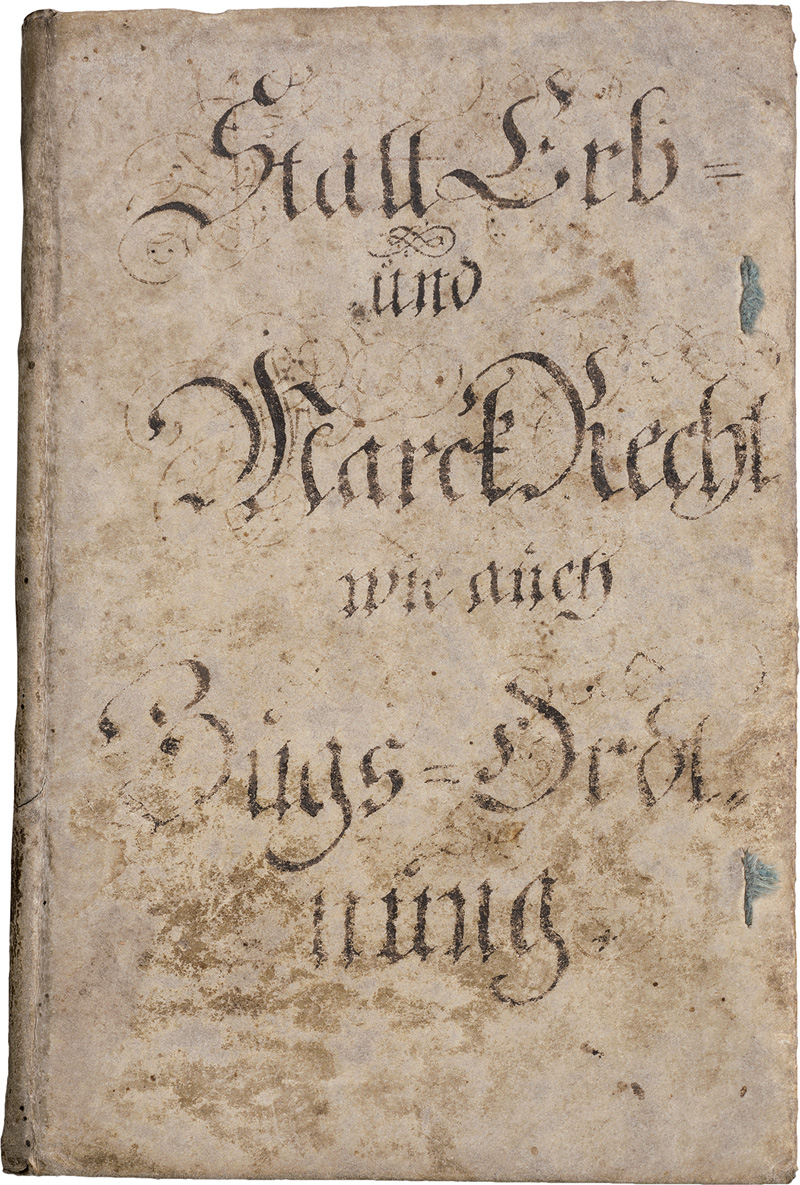 Statt Erb=
und
Marck Recht
wie auch
Zugs=Ordt.
nung.